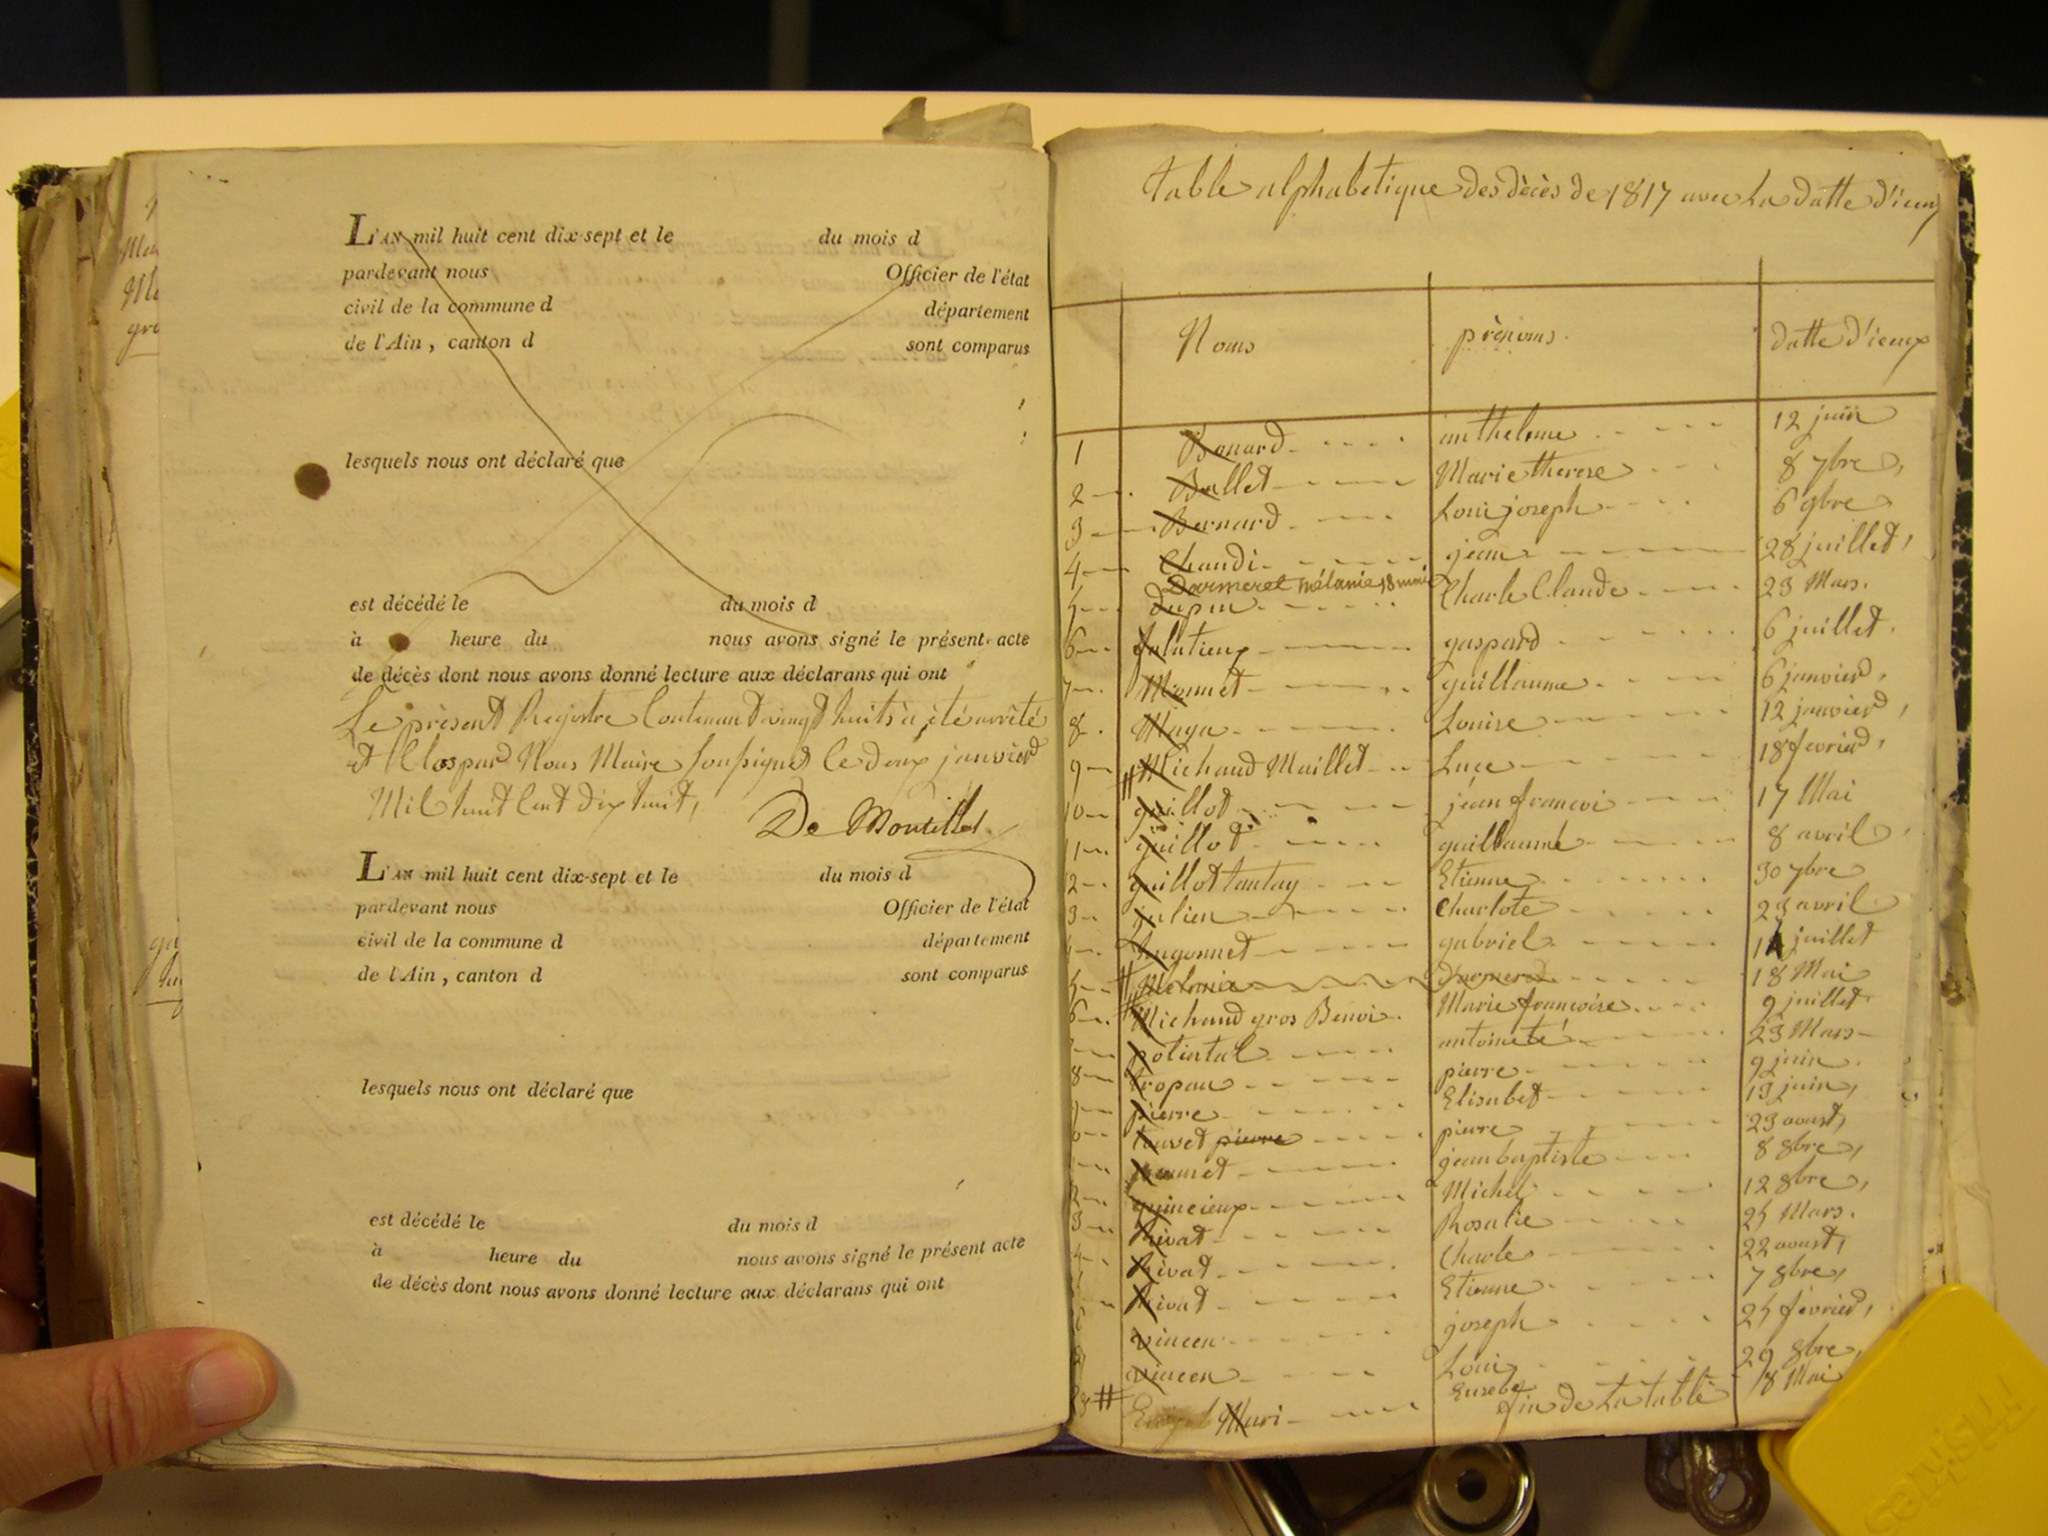 L'AN mil huit cent dix-sept et le du mois d
pardevant nous Officier de l'état
civil de la commune d département
de l'Ain, canton d sont comparus
lesquels nous ont déclaré que
est décédé le du mois d
à heure du nous avons signé le présent acte
de décès dont nous avons donné lecture aux déclarans qui ont
Le présent Registre Contenant vingt huit à été arrêté
et Clos par Nous Maire soussigné le deux janvier
Mil huit Cent dix huit,
De Montillet
L'AN mil huit cent dix-sept et le du mois d
pardevant nous Officier de l'état
civil de la commune d département
de l'Ain, canton d sont comparus
lesquels nous ont déclaré que
est décédé le du mois d
à heure du nous avons signé le présent acte
de décès dont nous avons donné lecture aux déclarans qui ont
table alphabetique des décès de 1817 avec La datte d'iceux
Noms prénoms datte d'iceux
1 Bonard anthelme 12 juin
2 Ballet Marie therese 8 7bre
3 Bernard Loui joseph 6 9bre
4 Chaudi jean 28 juillet
Dormeret mélanie 18 mai
5 Dupin Charle Claude 23 Mars
6 falatieux gaspard 6 juillet
7 Monnet guillaume 6 janvier
8 Maga Louise 12 janvier
9 Michaud Maillet Luce 18 fevrier
10 guillot jean francoi 17 Mai
11 guillot guillaume 8 avril
12 guillot tantay Etienne 30 7bre
3 julien Charlote 23 avril
4 gabriel juillet
5 Melanie Dormeret 18 Mai
6 Michaud gros Benoi Marie francoise 9 juillet
antoineté 23 Mars
8 tropan pierre 9 juin
9 pierre Elisabet 13 juin
0 touvet pierre pierre 23 aoust
jean baptiste 8 8bre
2 quincieux Michel 12 8bre
3 Rivat Rosalie 25 Mars
4 Rivat Charle 22 aoust
Rivat Etienne 7 8bre
6 vincen joseph 25 février
vincen Loui 29 8bre
28 Mari Eusebe 8 Mai
fin de La table